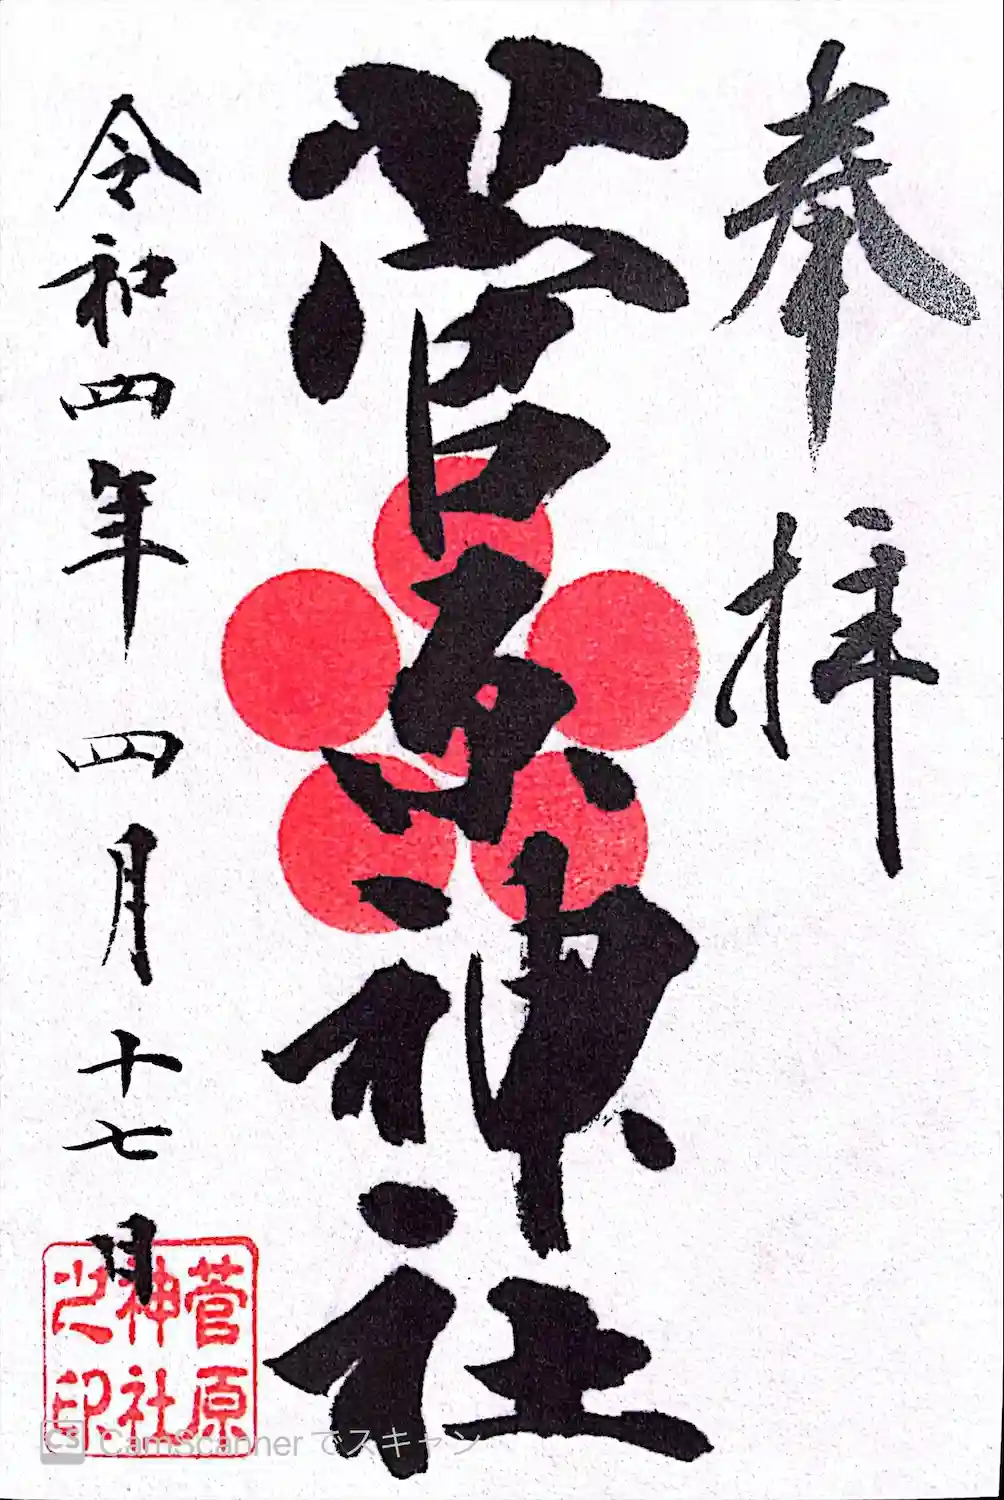 奉拝
菅原神社
令和四年四月十七日
菅原
神社
之印
CS CamScanner でスキャン